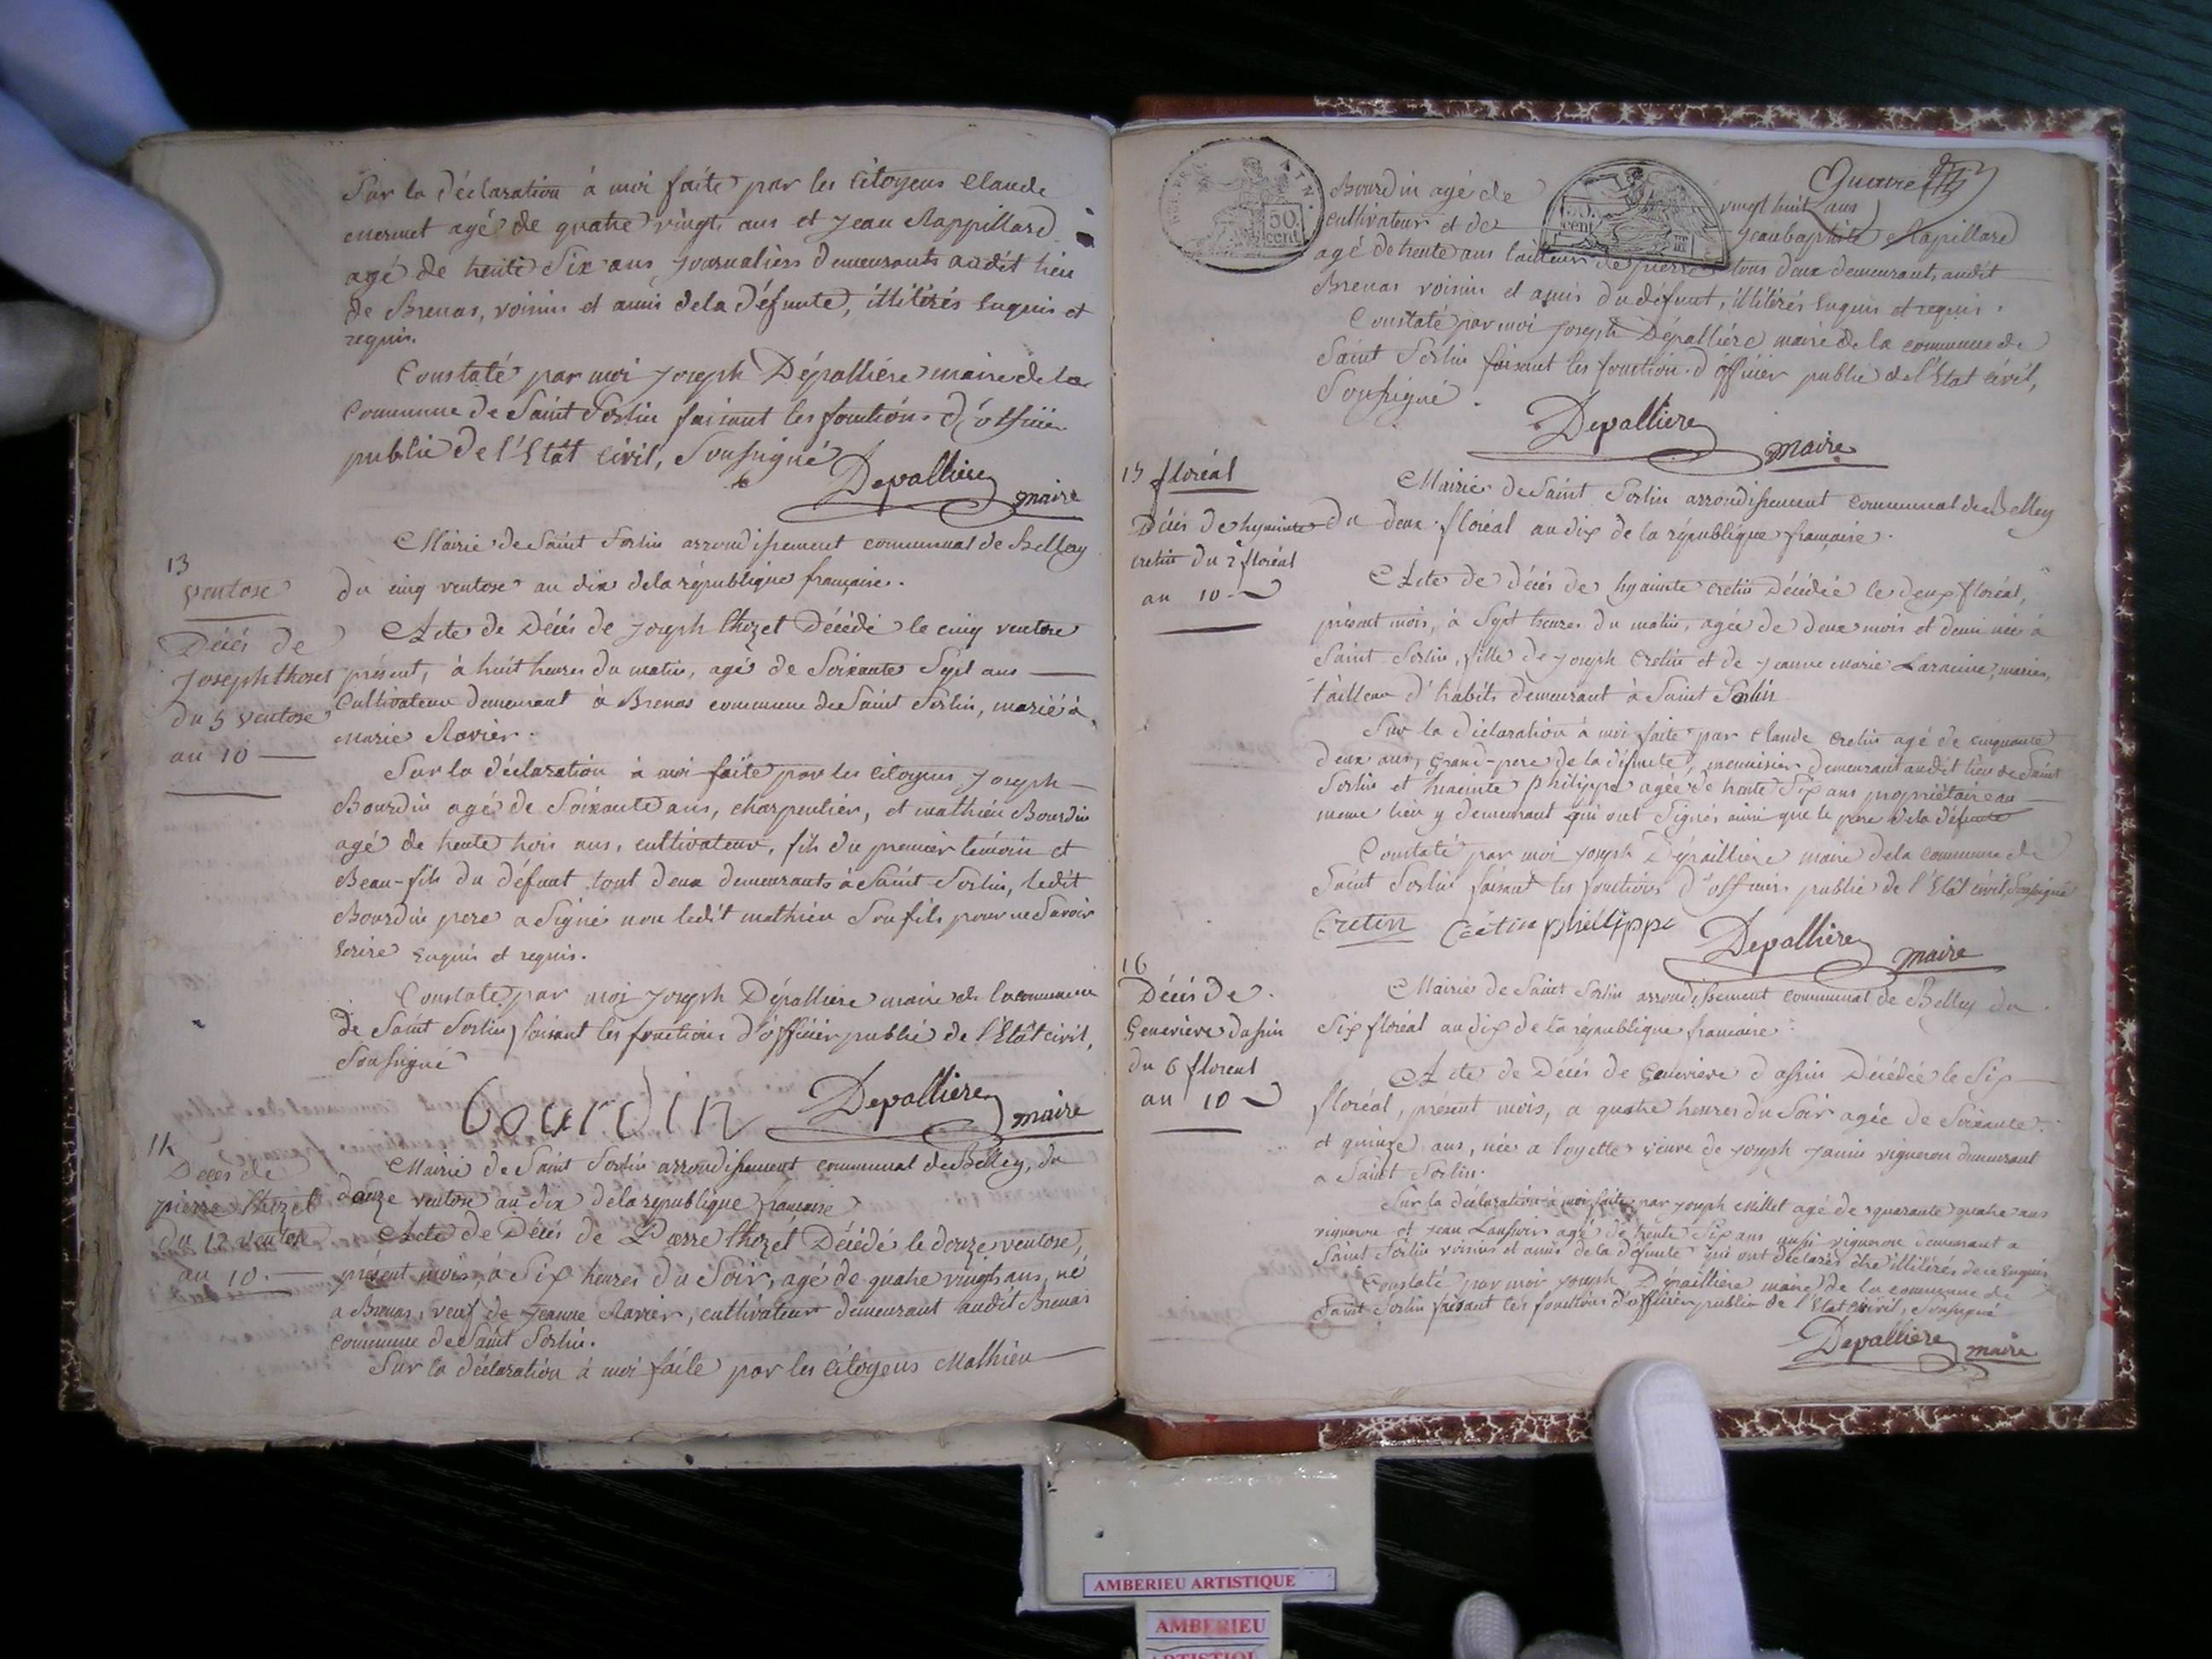 Sur la déclaration à moi faite par les citoyens Claude
mermet agé de quatre vingt ans et Jean Rappillard
agé de trente Six ans, Journaliers demeurants audit lieu
de Brenas, voisins et amis dela défunte, illitérés Enquis et
requis.
Constaté par moi Joseph Dépallière maire de la
Commune de Saint Sorlin faisant les fonctions d'officier
public de l'Etat Civil, Soussigné
Depalliere maire
Mairie de Saint Sorlin arrondissement communal de Belley
13
ventose
du cinq ventose an dix dela république française.
Décés de
Joseph thozet
du 5 ventose
an 10
Acte de Décés de Joseph thozet Décédé le cinq ventose
présent, à huit heures du matin, agé de Soixante Sept ans
Cultivateur demeurant à Brenas commune de Saint Sorlin, marié à
Marie Ravier.
Sur la déclaration à moi faite par les citoyens Joseph
Bourdin agé de Soixante ans, charpentier, et mathieu Bourdin
agé de trente trois ans, cultivateur, fils du premier témoin et
Beau-fils du défunt tout deux demeurants à Saint Sorlin, ledit
Bourdin pere a Signé non ledit mathieu Son fils pour ne Savoir
Ecrire Enquis et requis.
Constaté par moi Joseph Dépalliere maire de la commune
de Saint Sorlin faisant les fonctions d'officier public de l'Etat civil,
Soussigné
bourdin Depalliere maire
14
Décés de
pierre thozet
du 12 ventose
an 10.
Mairie de Saint Sorlin arrondissement communal de Belley, du
douze ventose an dix dela republique française
Acte de Décés de Pierre thozet Décédé le douze ventose,
présent mois, à Six heures du Soir, agé de quatre vingts ans, né
a Brenas, veuf de Jeanne Ravier, cultivateur demeurant audit Brenas
commune de Saint Sorlin.
Sur la déclaration à moi faite par les citoyens Mathieu
50.
cent
cent
Bourdin agé de vingt huit ans
cultivateur et de Jean baptiste Rapillard
agé de trente ans tailleur de pierre tous deux demeurants audit
Brenas voisins et amis du défunt, illitérés Enquis et requis.
Constaté par moi Joseph Dépallière maire de la commune de
Saint Sorlin faisant les fonction d'officier public de l'Etat civil,
Soussigné.
Depalliere maire
15 floréal
Mairie de Saint Sorlin arrondissement communal de Belley
Décés de hyacinte
cretin du 2 floréal
an 10
du deux floréal an dix de la république française.
Acte de décés de hyacinte cretin Décédée le deux floréal,
présent mois, à Sept heures du matin, agée de deux mois et demi née à
Saint Sorlin, fille de Joseph Cretin et de Jeanne Marie mariés,
tailleur d'habits demeurant à Saint Sorlin
Sur la déclaration à moi faite par Claude Cretin agé de cinquante
deux ans, grand-pere de la défunte, menuisier demeurant audit lieu de Saint
Sorlin et hiacinte Philippe agée de trente Six ans propriétaire au
meme lieu y demeurant qui ont Signés ainsi que le pere dela défunte
Constaté par moi Joseph Dépallière maire dela commune de
Saint Sorlin faisant les fonctions d'officier public de l'Etat civil, Soussigné
Cretin Cretin phillippe Depalliere maire
16
Décés de
Genevieve dassin
du 6 floreal
an 10
Mairie de Saint Sorlin arrondissement communal de Belley du
Six floréal an dix de la république française.
Acte de Décés de Genevieve dassin Décédée le Six
floréal, présent mois, a quatre heures du Soir agée de Soixante
et quinze ans, née a loyette veuve de Joseph Janin vigneron demeurant
a Saint Sorlin.
Sur la déclaration à moi faite par Joseph Millet agé de quarante quatre ans
vigneron et Jean agé de trente Six ans aussi vigneron demeurant a
Saint Sorlin voisins et amis de la défunte qui ont déclarés être illitérés de ce Enquis
Constaté par moi Joseph Dépallière maire de la commune de
Saint Sorlin faisant les fonctions d'officier public de l'Etat Civil, Soussigné
Depalliere maire
AMBERIEU ARTISTIQUE
AMBERIEU
ARTISTIQUE